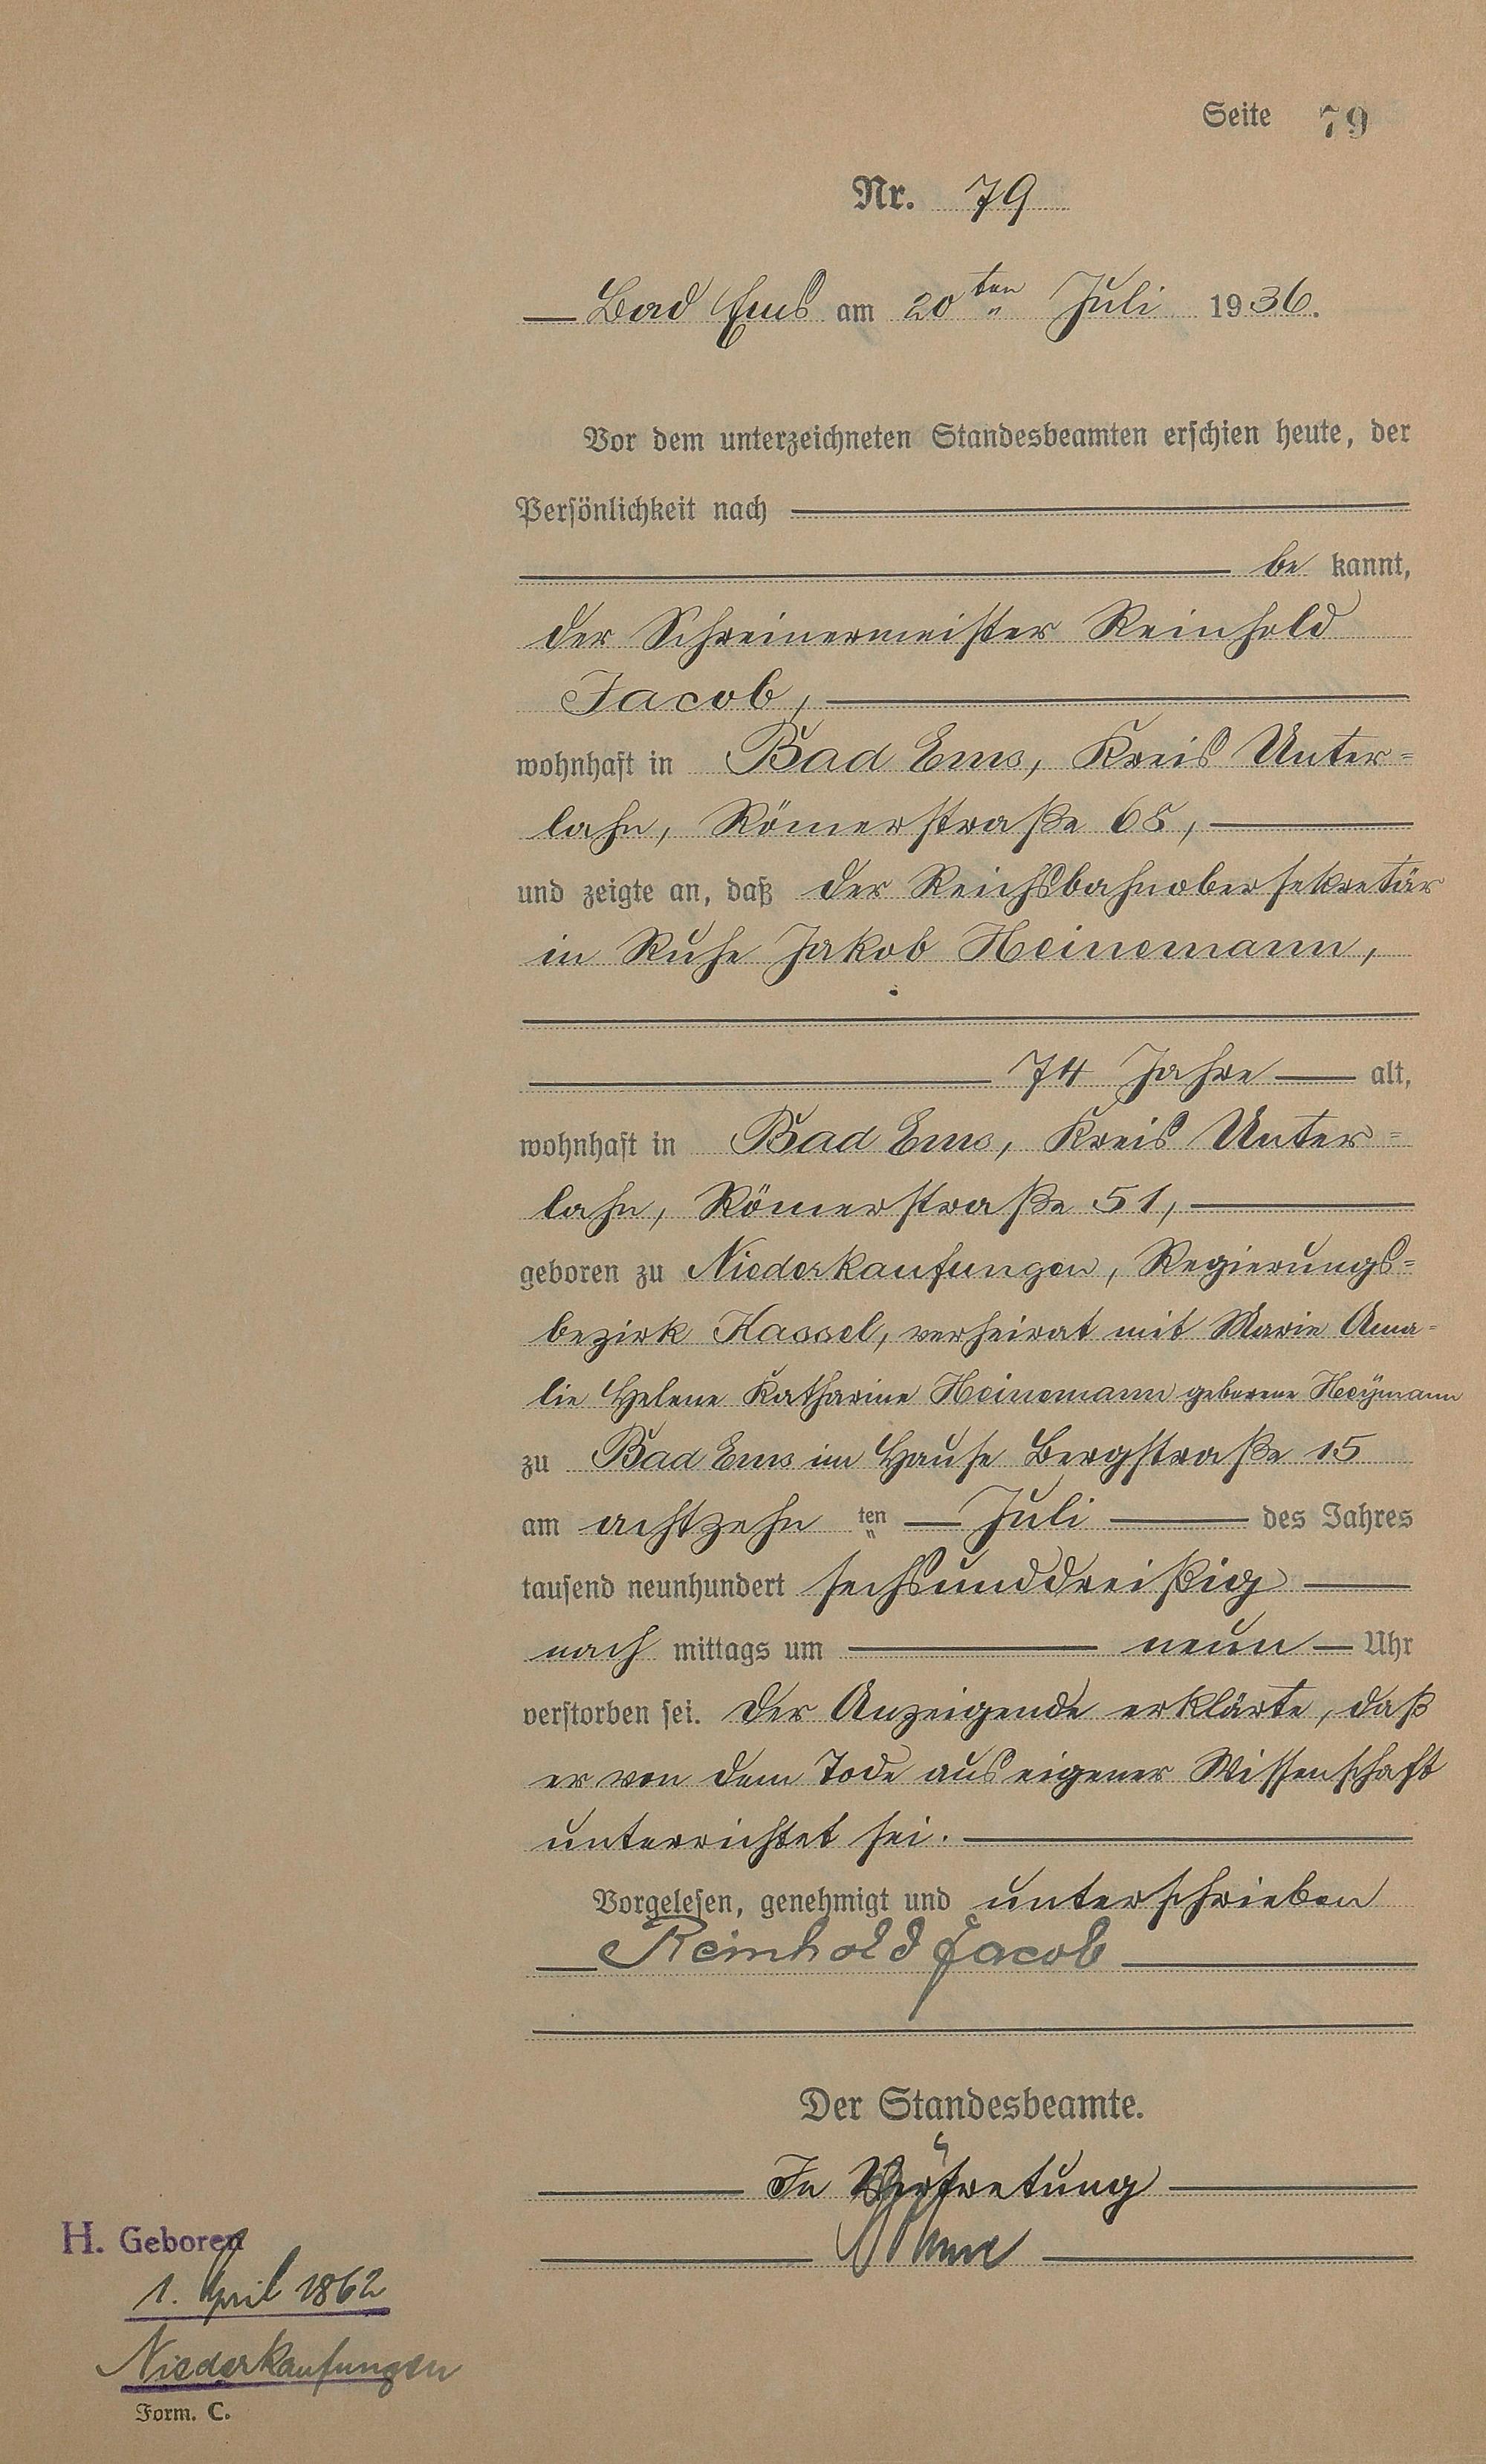 Seite 79
Nr. 79
Bad Ems am 20ten Juli 1936.
Vor dem unterzeichneten Standesbeamten erschien heute, der
Persönlichkeit nach
be kannt,
der Schreinermeister Reinhold
Jacob,
wohnhaft in Bad Ems, Kreis Unter=
lahn, Römerstraße 68,
und zeigte an, daß der Reichsbahnobersekretär
in Ruhe Jakob Heinemann,
74 Jahre alt,
wohnhaft in Bad Ems, Kreis Unter=
lahn, Römerstraße 51,
geboren zu Niederkaufungen, Regierungs=
bezirk Kassel, verheirat mit Marie Ama=
lie Helene Katharine Heinemann geborene Heymann
zu Bad Ems im Hause Bergstraße 15
am achtzehn ten Juli des Jahres
tausend neunhundert sechsunddreißig
nach mittags um neun Uhr
verstorben sei. Der Anzeigende erklärte, daß
er von dem Tode aus eigener Wissenschaft
unterrichtet sei.
Vorgelesen, genehmigt und unterschrieben
Reinhold Jacob
Der Standesbeamte.
In Vertretung
H. Geboren
1. April 1862
Niederkaufungen
Form. C.